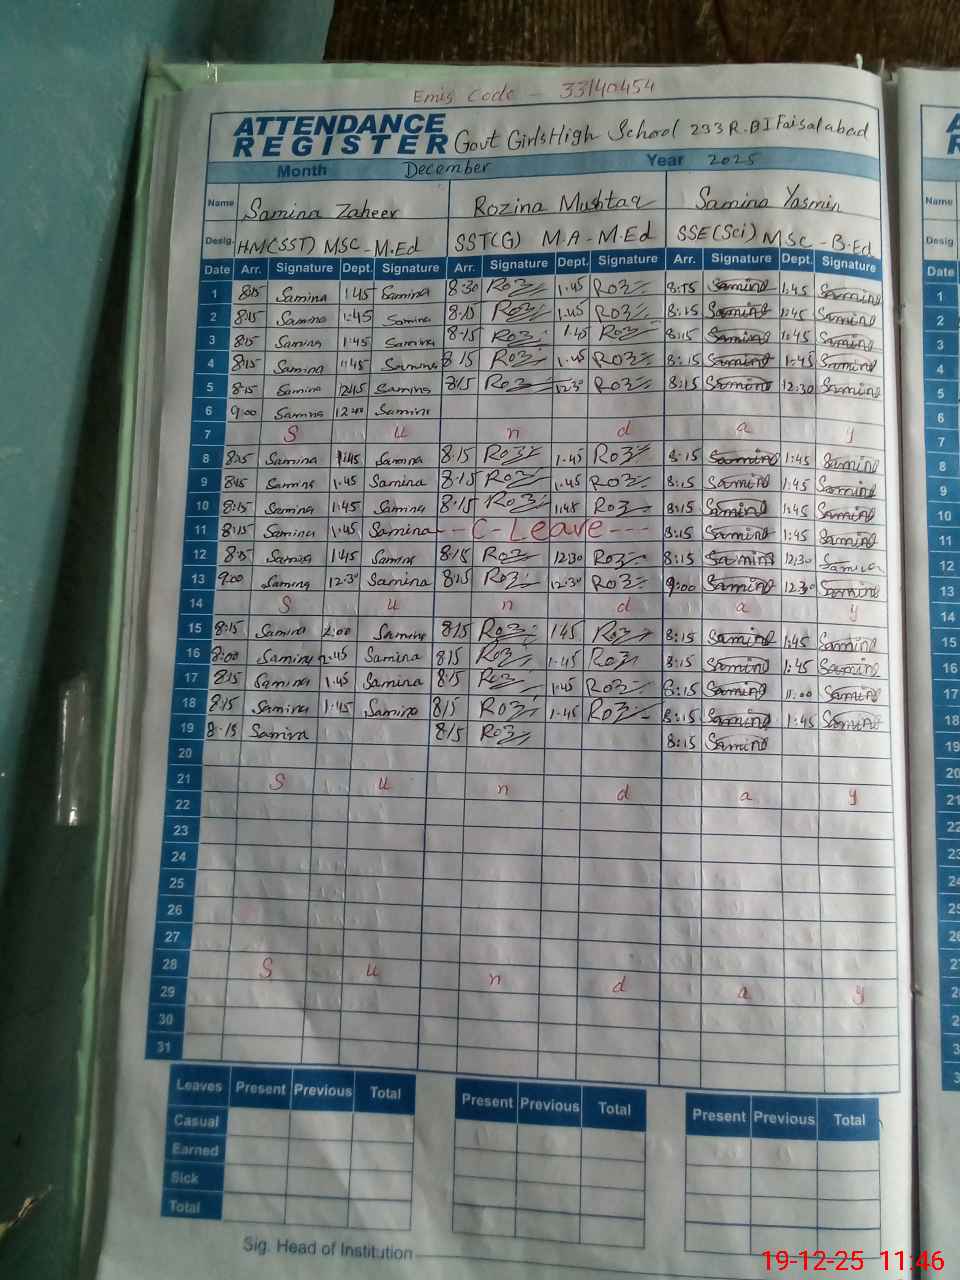 Emis Code - 33140454
ATTENDANCE REGISTER Govt Girls High School 233 R.B I Faisalabad
Month December Year 2025
Name Samina Zaheer Rozina Mushtaq Samina Yasmin
Desig. HM(SST) MSC - M.Ed SST(G) M.A - M.Ed SSE(Sci) MSC - B.Ed
Date Arr. Signature Dept. Signature Arr. Signature Dept. Signature Arr. Signature Dept. Signature
1 8:15 Samina 1:45 Samina 8:30 Roz 1:45 Roz 8:15 Samina 1:45 Samina
2 8:15 Samina 1:45 Samina 8:15 Roz 1:45 Roz 8:15 Samina 1:45 Samina
3 8:15 Samina 1:45 Samina 8:15 Roz 1:45 Roz 8:15 Samina 1:45 Samina
4 8:15 Samina 1:45 Samina 8:15 Roz 1:45 Roz 8:15 Samina 1:45 Samina
5 8:15 Samina Samina 8:15 Roz 12:30 Roz 8:15 Samina 12:30 Samina
6 9:00 Samina Samina
7 S u n d a y
8 8:15 Samina 1:45 Samina 8:15 Roz 1:45 Roz 8:15 Samina 1:45 Samina
9 8:15 Samina 1:45 Samina 8:15 Roz 1:45 Roz 8:15 Samina 1:45 Samina
10 8:15 Samina 1:45 Samina 8:15 Roz 1:45 Roz 8:15 Samina 1:45 Samina
11 8:15 Samina 1:45 Samina --C-Leave--- 8:15 Samina 1:45 Samina
12 8:15 Samina 1:45 Samina 8:15 Roz 12:30 Roz 8:15 Samina 12:30 Samina
13 9:00 Samina 12:30 Samina 8:15 Roz 12:30 Roz 9:00 Samina 12:30 Samina
14 S u n d a y
15 8:15 Samina 2:00 Samina 8:15 Roz 1:45 Roz 8:15 Samina 1:45 Samina
16 8:00 Samina Samina 8:15 Roz 1:45 Roz 8:15 Samina 1:45 Samina
17 8:15 Samina 1:45 Samina 8:15 Roz 1:45 Roz 8:15 Samina Samina
18 8:15 Samina 1:45 Samina 8:15 Roz 1:45 Roz 8:15 Samina 1:45 Samina
19 8:15 Samina 8:15 Roz 8:15 Samina
20
21 S u n d a y
22
23
24
25
26
27
28 S u n d a y
29
30
31
Leaves Present Previous Total Present Previous Total Present Previous Total
Casual
Earned
Sick
Total
Sig. Head of Institution
19-12-25 11:46